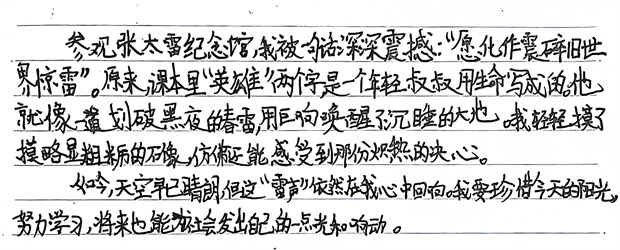 参观张太雷纪念馆,我被一句话深深震撼:“愿化作震碎旧世
界惊雷”。原来,课本里“英雄”两个字是一个年轻叔叔用生命写成的。他
就像一道划破黑夜的春雷,用巨响唤醒了沉睡的大地。我轻轻摸了
摸略显粗粝的石像,仿佛还能感受到那份炽热的决心。
如今,天空早已晴朗,但这“雷声”依然在我心中回响。我要珍惜今天的阳光,
努力学习,将来也能为社会发出自己的一点光和响动。